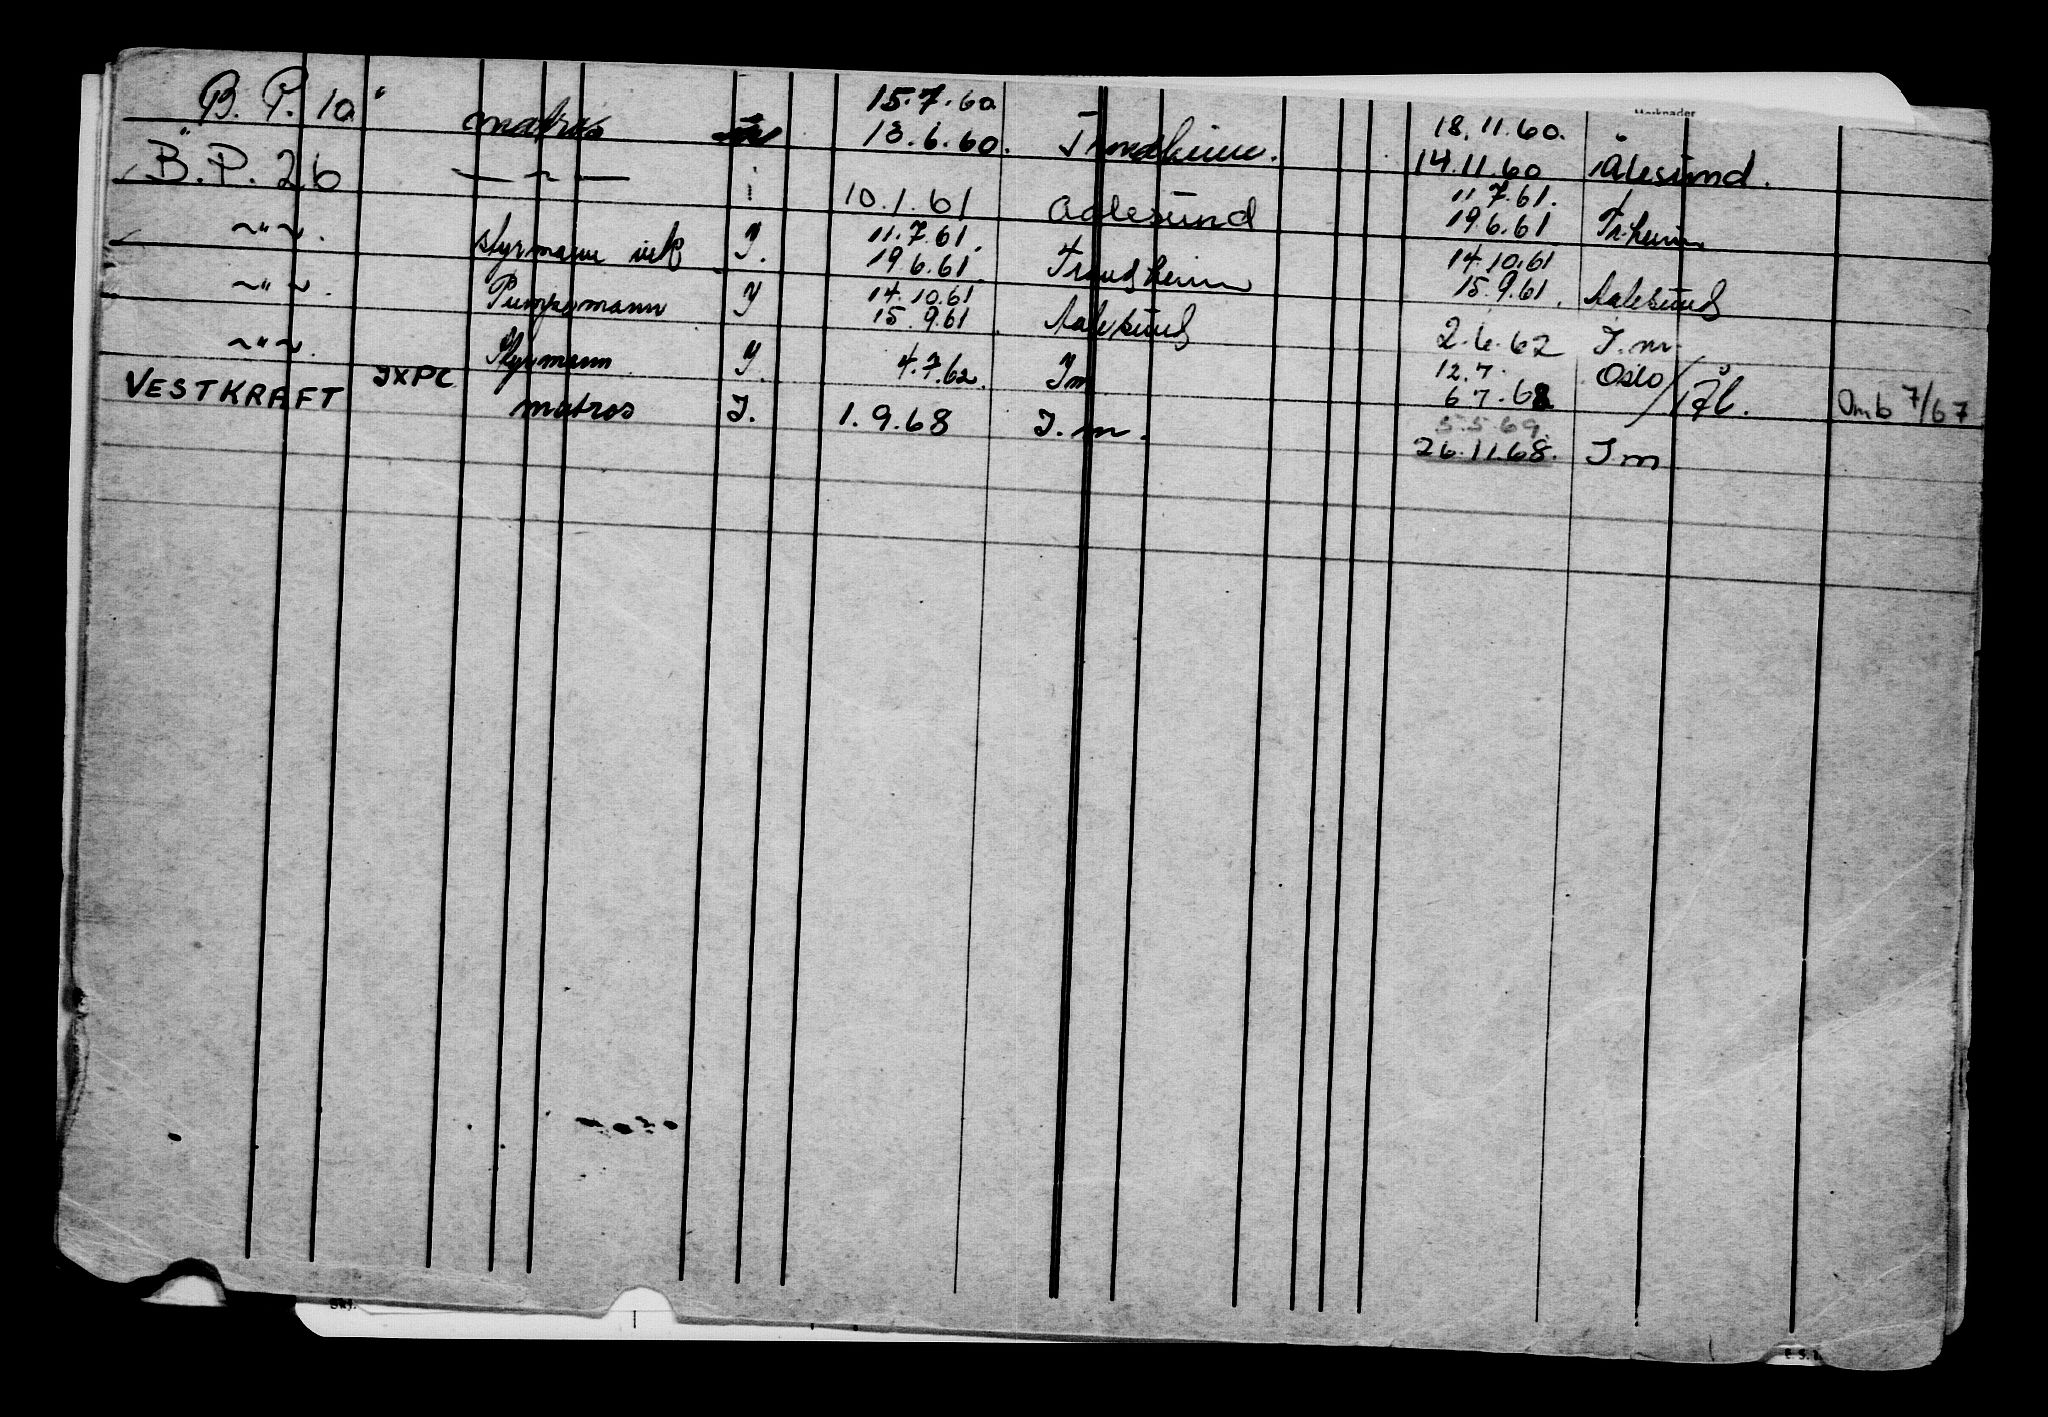 Merknader
B. P. 1a " matros 15.7.60 13.6.60. Trondheim. 18.11.60. 14.11.60 Ålesund.
B. P. 2b — " — i 10.1.61 Aalesund 11.7.61. 19.6.61 Tr.heim
~ " ~. styrmann vik J. 11.7.61. 19.6.61. Trondheim 14.10.61 15.9.61. Aalesund
~ " ~. Pumpemann J 14.10.61 15.9.61. Aalesund 2.6.62 I.m.
~ " ~. Styrmann J. 4.7.62. Im 12.7. 6.7.62 Oslo/
VESTKRAFT JXPC matros J. 1.9.68 I.m. 5.5.69. 26.11.68. Im Omb 7/67